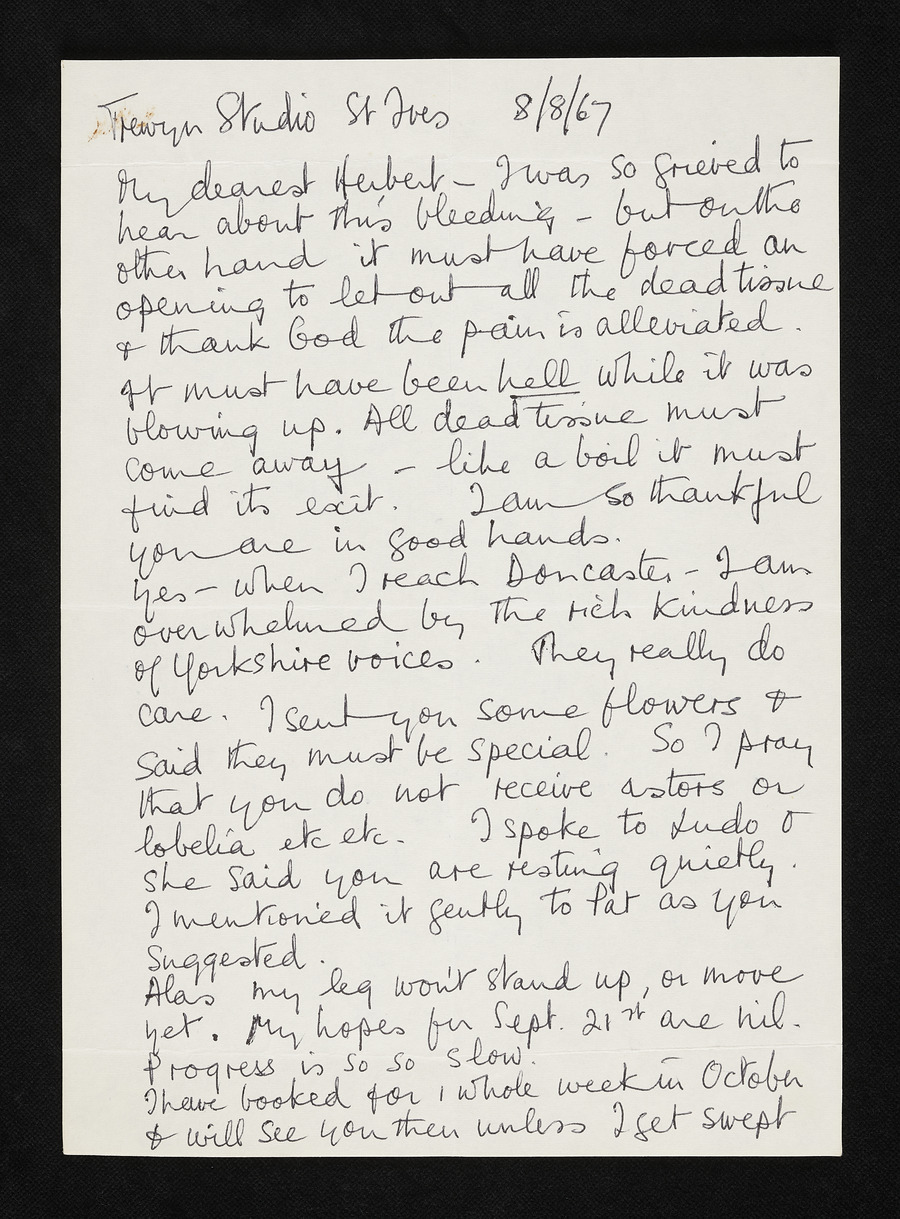 Trewyn Studio St Ives 8/8/67
My dearest Herbert – I was so grieved to
hear about this bleeding – but on the
other hand it must have forced an
opening to let out all the dead tissue
& thank God the pain is alleviated.
It must have been hell while it was
blowing up. All dead tissue must
come away – like a boil it must
find its exit. I am so thankful
you are in good hands.
Yes – when I reach Doncaster – I am
overwhelmed by the rich kindness
of Yorkshire voices. They really do
care. I sent you some flowers &
said they must be special. So I pray
that you do not receive astors or
lobelia etc etc. I spoke to Ludo &
she said you are resting quietly.
I mentioned it gently to Pat as you
suggested.
Alas my leg won't stand up, or move
yet. My hopes for Sept. 21st are nil.
Progress is so so slow.
I have booked for 1 whole week in October
& will see you then unless I get swept